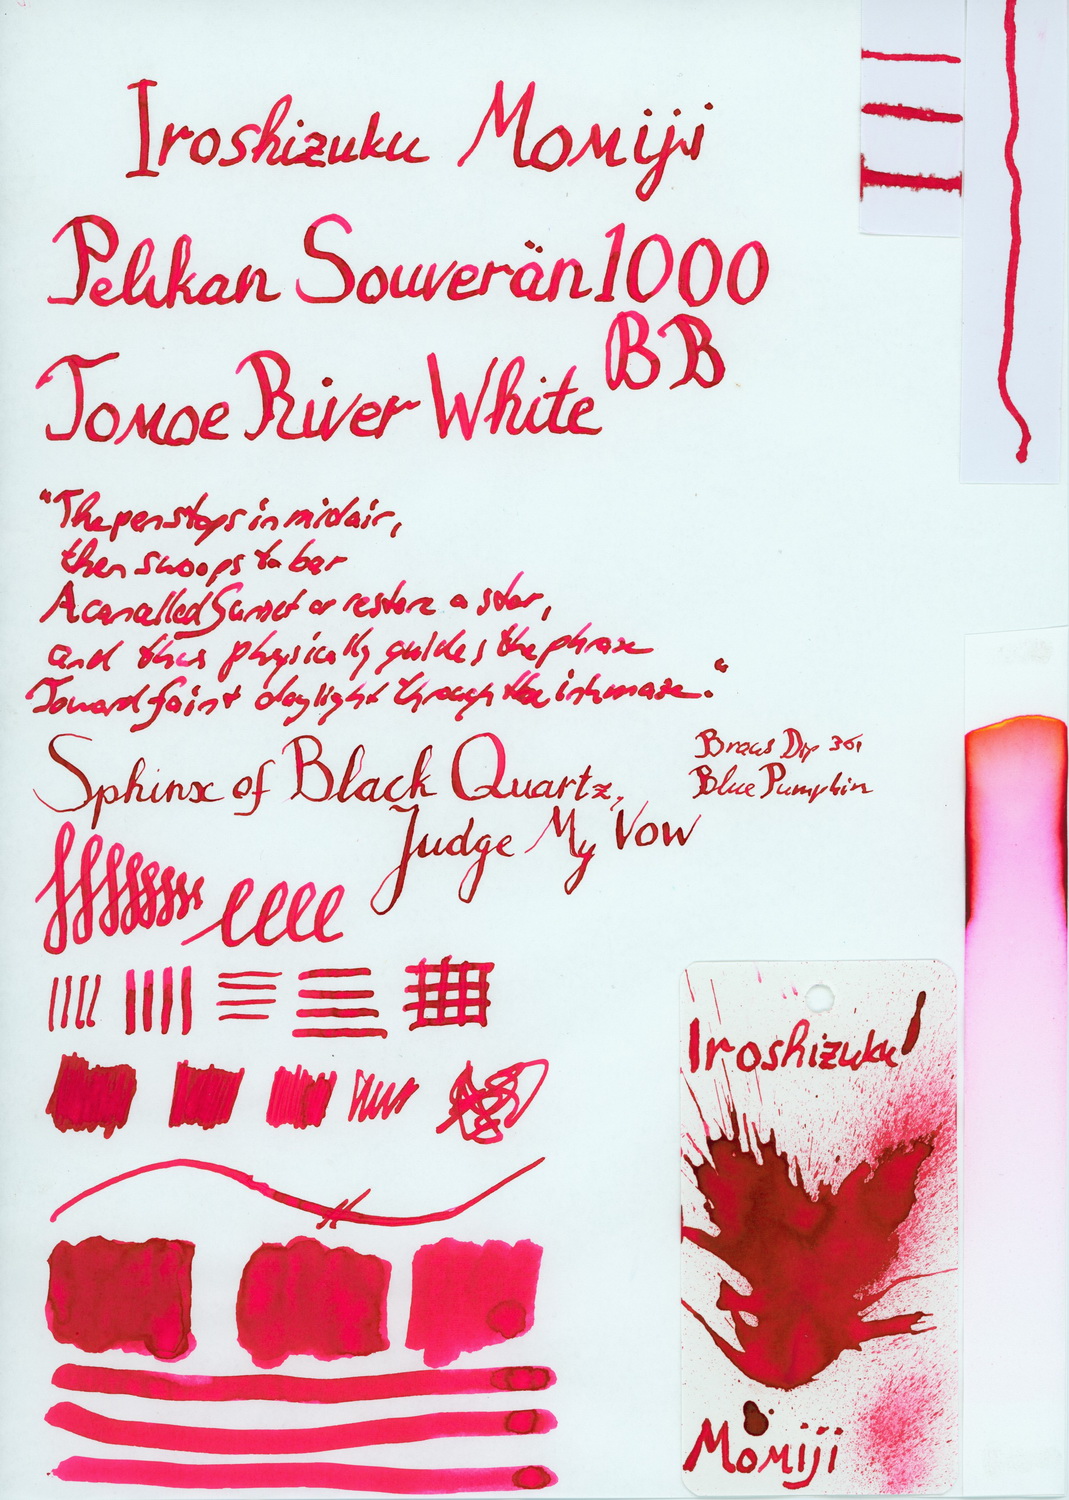 Iroshizuku Momiji
Pelikan Souverän 1000
BB
Tomoe River White
"The pen stops in midair,
then swoops to bar
A canalled Sunset or restore a star,
and thus physically guides the phrase
Toward faint daylight through the inkmaze."
Sphinx of Black Quartz,
Judge My Vow
Brause Dip 361
Blue Pumpkin
Iroshizuku
Momiji